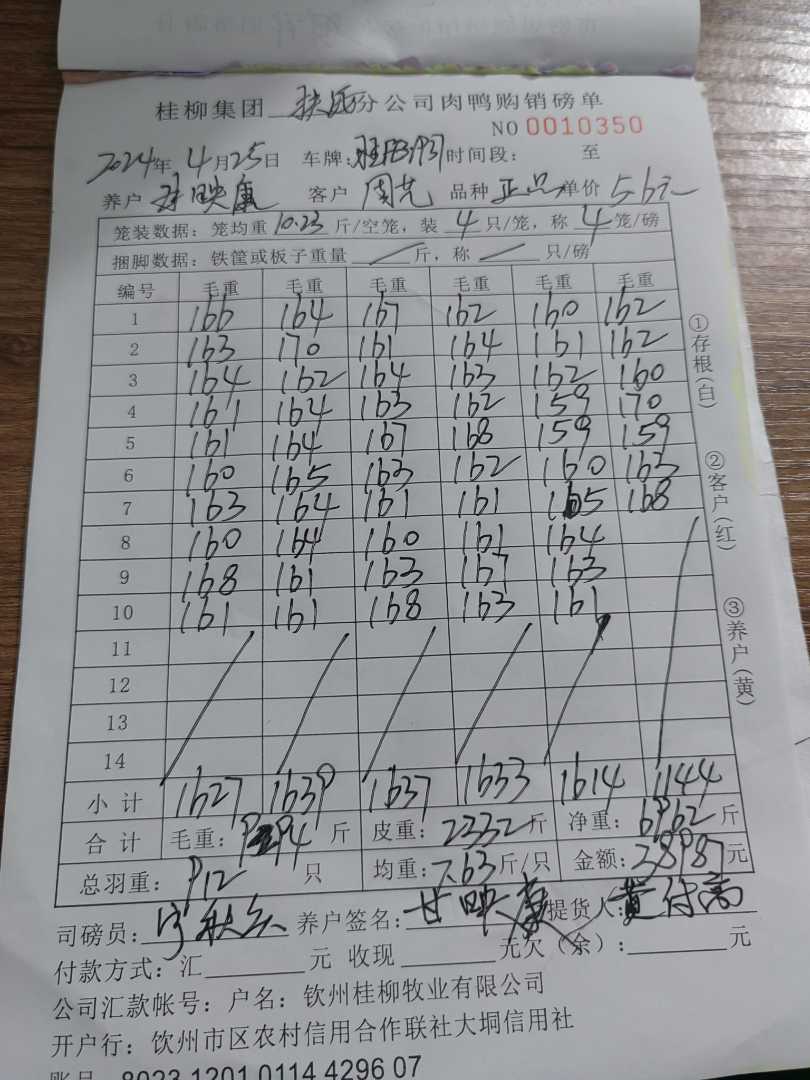 桂柳集团 分公司肉鸭购销磅单
NO 0010350
2024年 4月25日 车牌: 时间段: 至
养户 映康 客户 周 品种 正品 单价 5.6元
笼装数据: 笼均重 10.23 斤/空笼, 装 4 只/笼, 称 4 笼/磅
捆脚数据: 铁筐或板子重量 / 斤, 称 / 只/磅
编号 毛重 毛重 毛重 毛重 毛重 毛重
1 166 164 167 162 160 162
2 163 170 161 164 161 162
3 164 162 164 163 162 160
4 161 164 163 162 159 170
5 161 164 167 168 159 159
6 160 165 163 162 160 163
7 163 164 161 161 165 168
8 160 164 160 161 164
9 168 161 163 167 163
10 161 161 168 163 161
11
12
13
14
小计 1627 1639 1637 1633 1614 1144
合计 毛重: 9294 斤 皮重: 2332 斤 净重: 6962 斤
总羽重: 912 只 均重: 7.63 斤/只 金额: 38987 元
司磅员: 养户签名: 甘映康 提货人: 黄
付款方式: 汇 元 收现 元欠(余): 元
公司汇款帐号: 户名: 钦州桂柳牧业有限公司
开户行: 钦州市区农村信用合作联社大垌信用社
账号 8023 1201 0114 4296 07
①存根(白)
②客户(红)
③养户(黄)